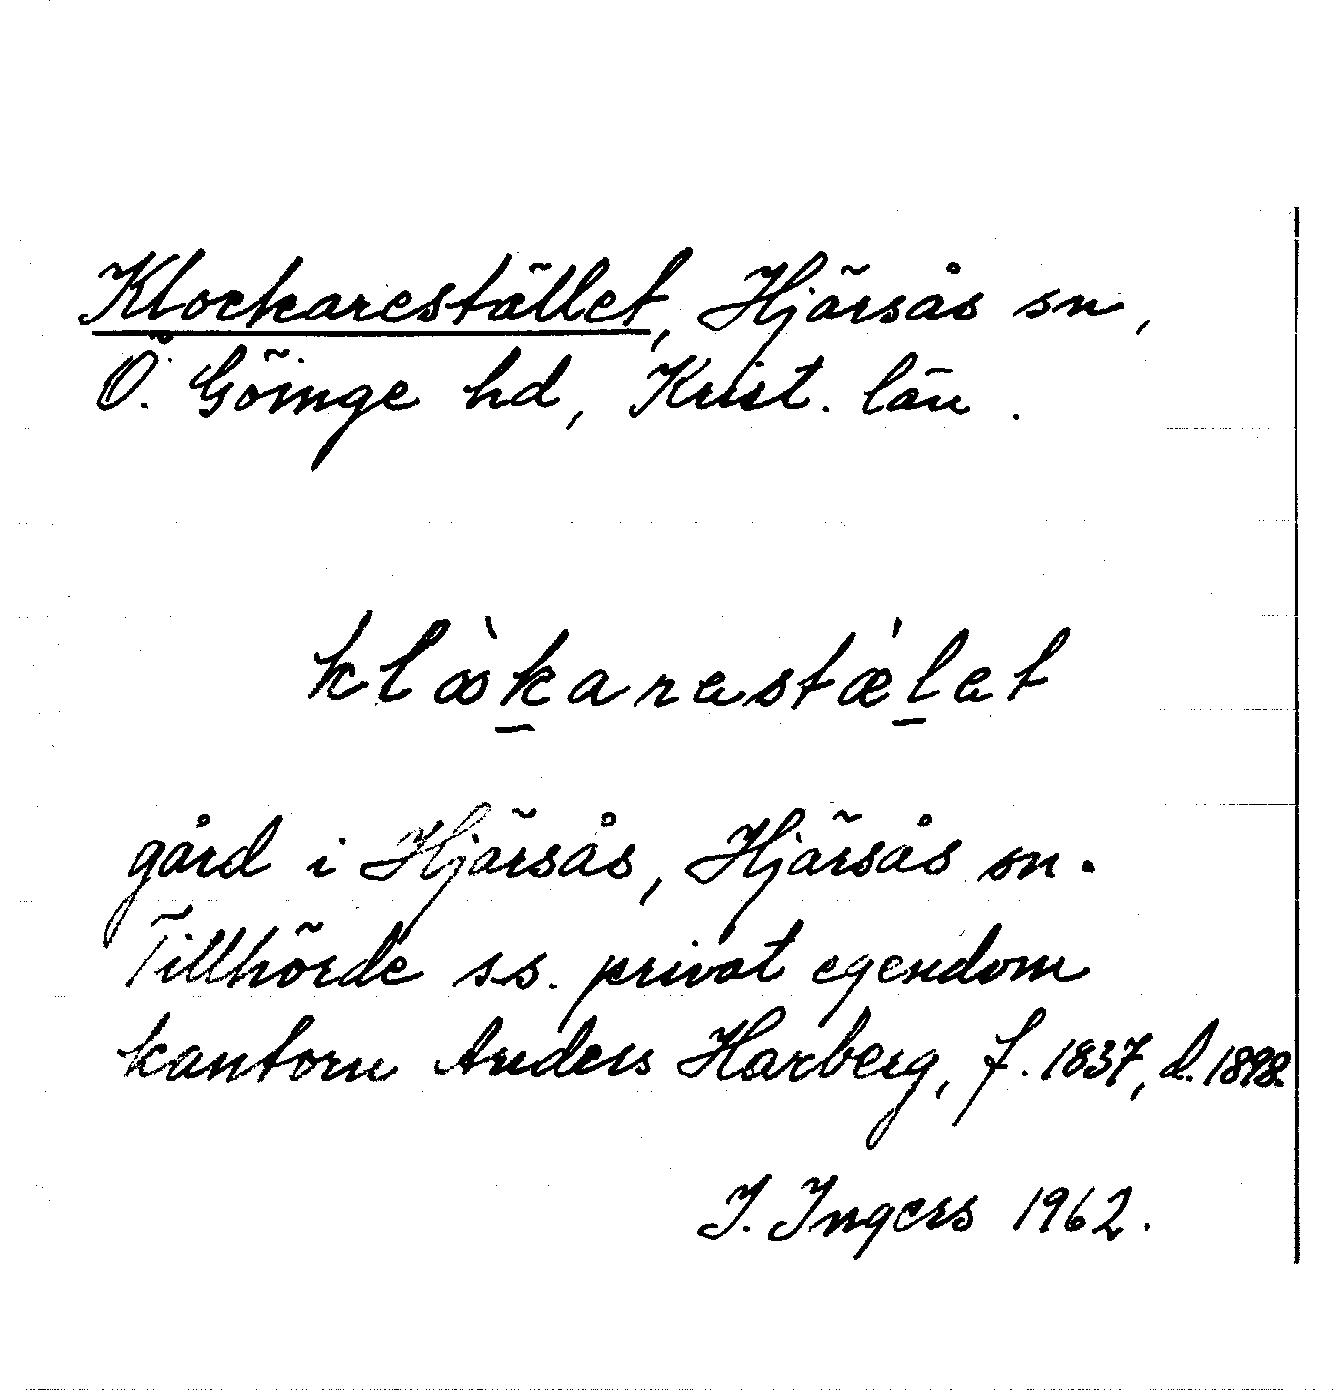 Klockarestället, Hjärsås sn,
Ö. Göinge hd, Krist. län.
klꝏ̀karəstǽlət
gård i Hjärsås, Hjärsås sn.
Tillhörde ss. privat egendom
kantorn Anders Harberg, f. 1837, d. 1898.
I. Ingers 1962.